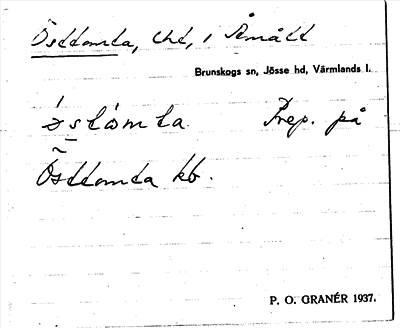 Östtomta, lht, i Åmått
Brunskogs sn, Jösse hd, Värmlands l.
öståmta. Prep. på
Östtomta kb.
P. O. GRANÉR 1937.